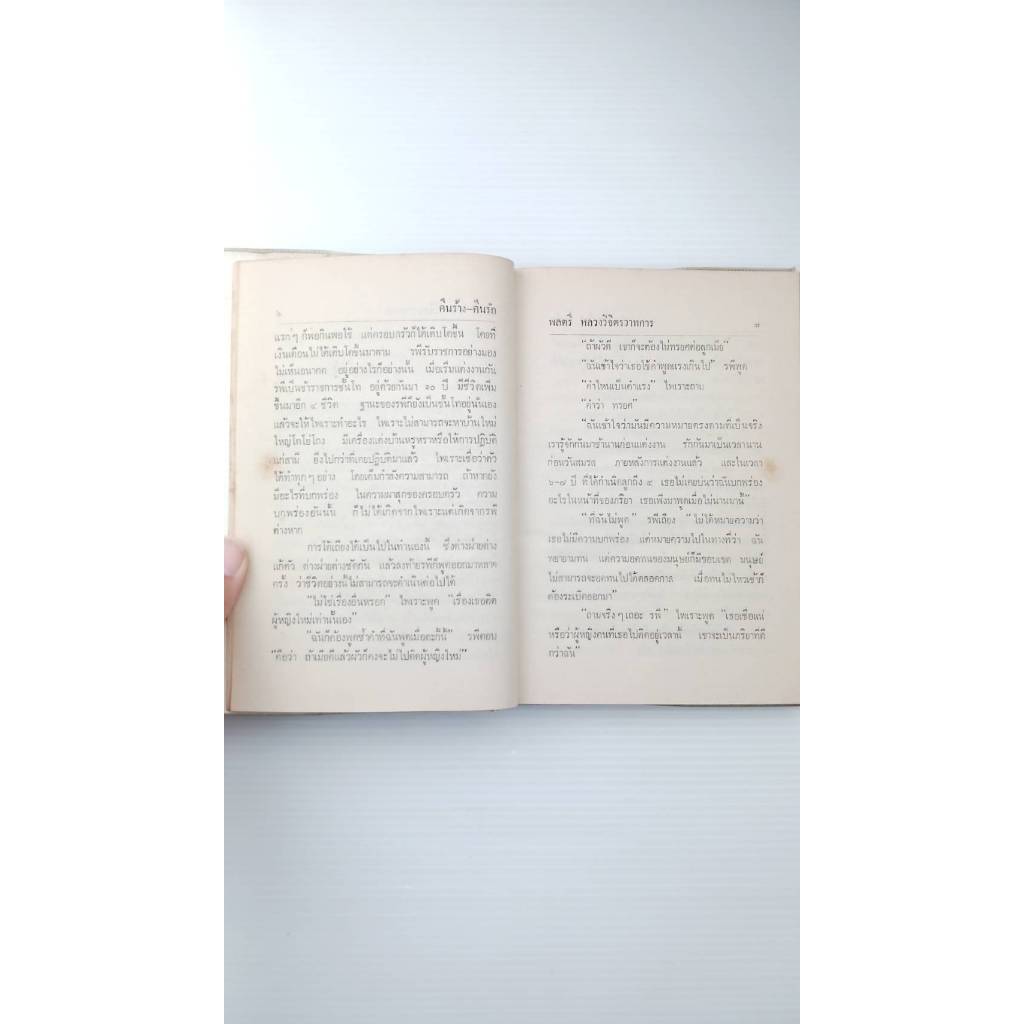 ๖
คืนร้าง-คืนรัก
แรกๆ ก็พอกินพอใช้ แต่ครอบครัวก็ได้เติบโตขึ้น โดยที่
เงินเดือนไม่ได้เติบโตขึ้นมาตาม รพีรับราชการอย่างมอง
ไม่เห็นอนาคต อยู่อย่างไรก็อย่างนั้น เมื่อเริ่มแต่งงานกัน
รพีเป็นข้าราชการชั้นโท อยู่ด้วยกันมา ๑๐ ปี มีชีวิตเพิ่ม
ขึ้นมาอีก ๔ ชีวิต ฐานะของรพีก็ยังเป็นชั้นโทอยู่นั่นเอง
แล้วจะให้ไพเราะทำอะไร ไพเราะไม่สามารถจะหาบ้านใหม่
ใหญ่โตโอ่โถง มีเครื่องแต่งบ้านหรูหราหรือให้การปฏิบัติ
แก่สามี ยิ่งไปกว่าที่เคยปฏิบัติมาแล้ว ไพเราะเชื่อว่าตัว
ได้ทำทุกๆ อย่าง โดยเต็มกำลังความสามารถ ถ้าหากยัง
มีอะไรที่บกพร่อง ในความผาสุกของครอบครัว ความ
บกพร่องอันนั้น ก็ไม่ได้เกิดจากไพเราะแต่เกิดจากรพี
ต่างหาก
การโต้เถียงได้เป็นไปในทำนองนี้ ซึ่งต่างฝ่ายต่าง
แก้ตัว ต่างฝ่ายต่างซัดกัน แล้วลงท้ายรพีก็พูดออกมาหลาย
ครั้ง ว่าชีวิตอย่างนี้ไม่สามารถจะดำเนินต่อไปได้
"ไม่ใช่เรื่องอื่นหรอก" ไพเราะพูด "เรื่องเธอติด
ผู้หญิงใหม่เท่านั้นเอง"
"ฉันก็ต้องพูดซ้ำคำที่ฉันพูดเมื่อตะกี้นี้" รพีตอบ
"คือว่า ถ้าเมียดีแล้วผัวก็คงจะไม่ไปติดผู้หญิงใหม่"
พลตรี หลวงวิจิตรวาทการ
๗
"ถ้าผัวดี เขาก็จะต้องไม่ทรยศต่อลูกเมีย"
"ฉันเข้าใจว่าเธอใช้คำพูดแรงเกินไป" รพีพูด
"คำไหนเป็นคำแรง" ไพเราะถาม
"คำว่า ทรยศ"
"ฉันเข้าใจว่ามันมีความหมายตรงตามที่เป็นจริง
เรารู้จักกันมาช้านานก่อนแต่งงาน รักกันมาเป็นเวลานาน
ก่อนวันสมรส ภายหลังการแต่งงานแล้ว และในเวลา
๖-๗ ปี ที่ให้กำเนิดลูกถึง ๔ เธอไม่เคยบ่นว่าฉันบกพร่อง
อะไรในหน้าที่ของภริยา เธอเพิ่งมาพูดเมื่อไม่นานมานี้"
"ที่ฉันไม่พูด" รพีเถียง "ไม่ได้หมายความว่า
เธอไม่มีความบกพร่อง แต่หมายความไปในทางที่ว่า ฉัน
พยายามทน แต่ความอดทนของมนุษย์ก็มีขอบเขต มนุษย์
ไม่สามารถจะอดทนไปได้ตลอดกาล เมื่อทนไม่ไหวเข้าก็
ต้องระเบิดออกมา"
"ถามจริงๆ เถอะ รพี" ไพเราะพูด "เธอเชื่อแน่
หรือว่าผู้หญิงคนที่เธอไปติดอยู่เวลานี้ เขาจะเป็นภริยาที่ดี
กว่าฉัน"